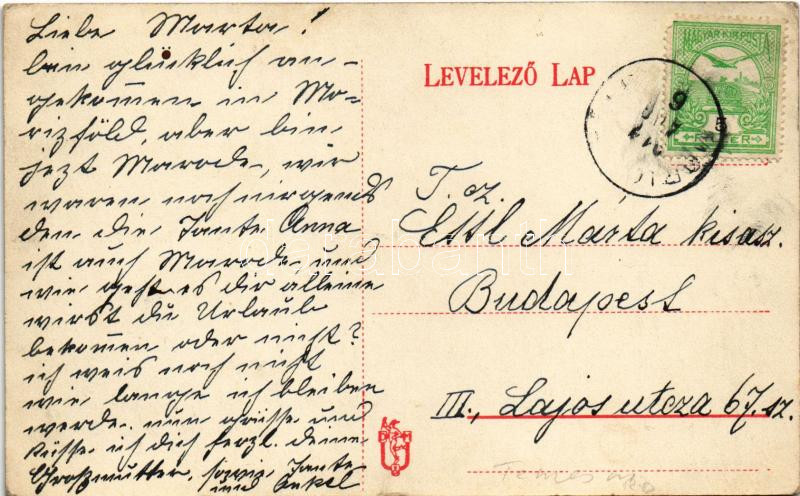 Liebe Marta!
bin glücklich an-
gekommen in Mo-
rizföld, aber bin
jezt Marode, wir
waren noch nirgends
den die Tante Anna
ist auch Marode und
wie geht es dir alleine
wirst du Urlaub
bekommen oder nicht?
ich weis noch nicht
wie lange ich bleiben
werde. nun grüsse und
küsse ich dich herzl. deine
Grossmutter, sowie Tante
und Onkel
LEVELEZŐ LAP
MAGYAR KIR. POSTA
T. cz.
Ettl Márta kisasz.
Budapest
III., Lajos utcza 67. sz.
darabanth